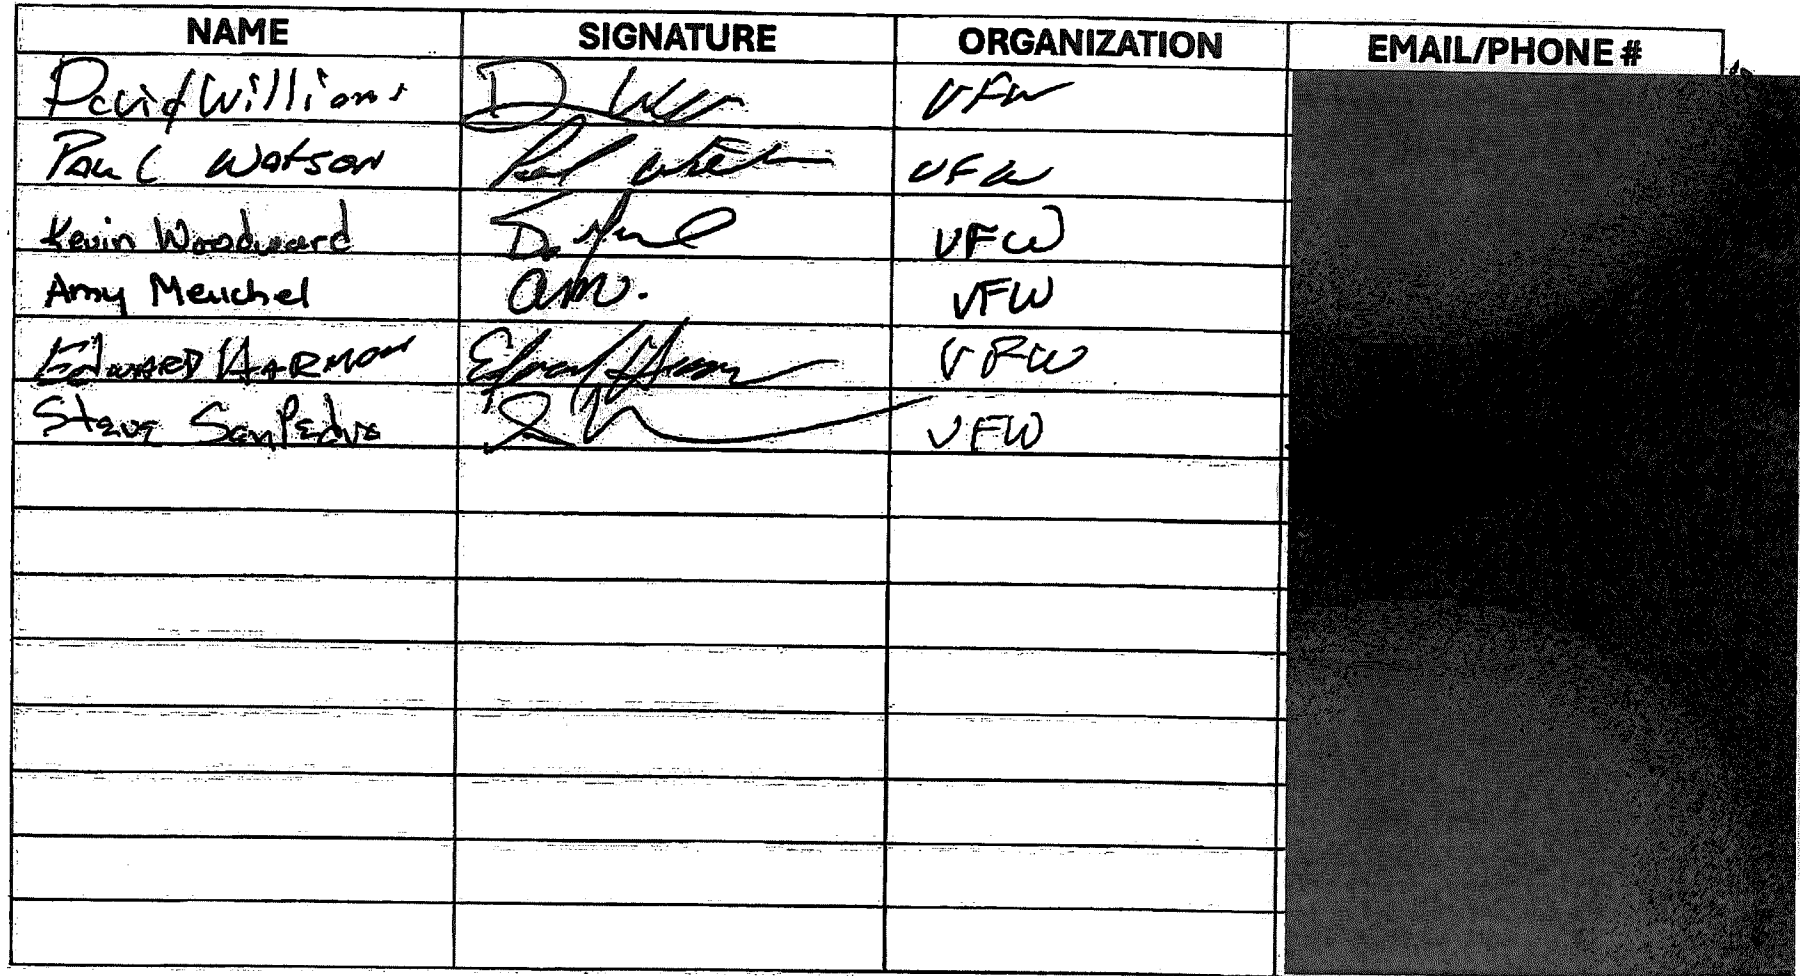 NAME SIGNATURE ORGANIZATION EMAIL/PHONE #
David Williams VFW
Paul Watson Paul VFW
Kevin Woodward VFW
Amy Meuchel am. VFW
Edward Harmon VFW
Steve SanPedro VFW